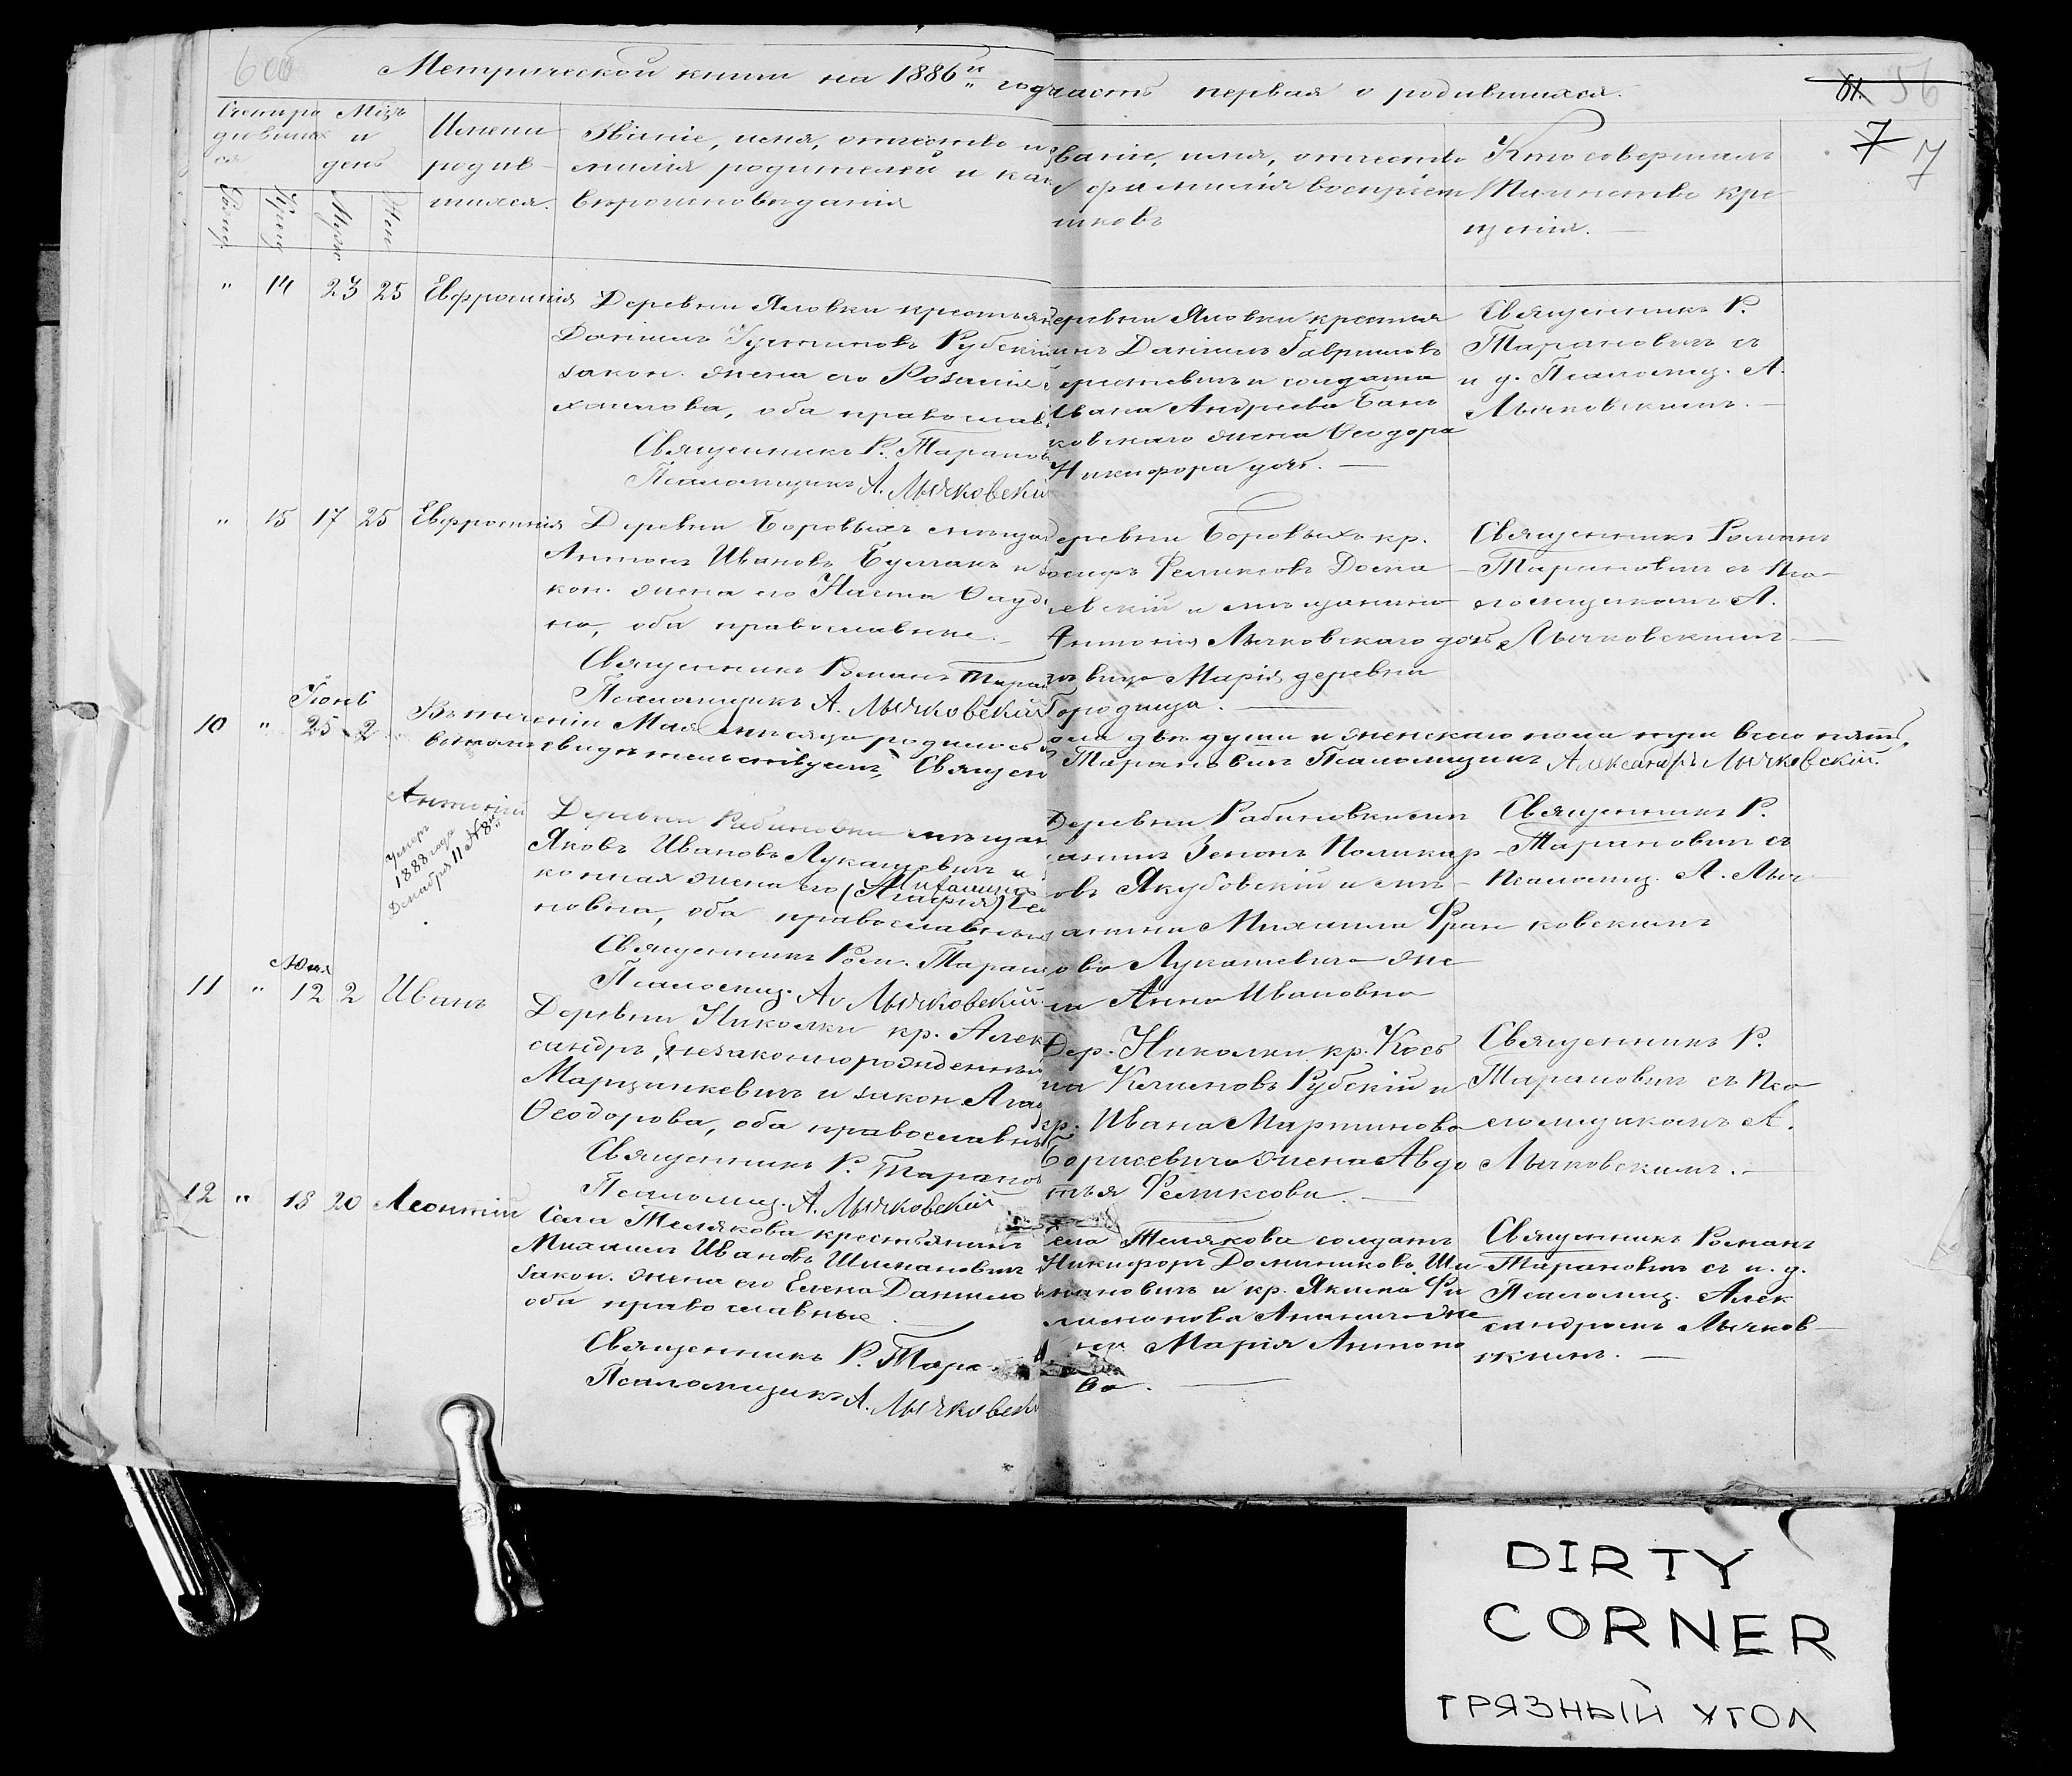 Метрической книги на 1886й годъ
часть первая о родившихся.
56
7
7
Мѣц.
и
день
Имена
родив-
шихся.
Званіе, имя, отчество и
милія родителей и как
вѣроисповѣданія
званіе, имя, отчество
и фамилія воспріем
никовъ
Кто совершалъ
Таинство кре
щенія.
" 14 23 25 Евфросинія
Деревни Яловки крестьян
Даніилъ Рубскій
закон. жена его Розалія
хаилова, оба православ
Священникъ Р. Таранов
Псаломщикъ А. Лычковскій
еревни Яловки крестья
инъ Даніилъ Гавриловъ
и солдата
Ивана Андреева Бань
ковскаго жена Ѳеодора
Никифора дочь.
Священникъ Р.
Тарановичъ съ
и д. Псаломщ. А.
Лычковскимъ.
" 15 17 25 Евфросинія
Деревни Боровыхъ мѣщан
Антонъ Ивановъ Булгакъ и
кон. жена его Наста
на, оба православные.
Священникъ Романъ Таран
Псаломщикъ А. Лычковскій
еревни Боровыхъ кр.
осифъ Феликсовъ
евскій и мѣщанина
Антонія Лычковскаго дочь
дѣвица Марія деревни
Городища.
Священникъ Романъ
Тарановичъ съ Пса
ломщикомъ А.
Лычковскимъ
Въ теченіи Мая мѣсяца родилось
пола двѣ души и женскаго пола три всего пять,
въ томъ свидѣтельствуемъ, Священ
Тарановичъ Псаломщикъ Александръ Лычковскій.
Іюнь
10 " 25 2
Антоній
умеръ
1888 года
Декабря 11 № 8й
Деревни Рабиновки мѣщан
Яковъ Ивановъ Лукашевичъ и
конная жена его (Агафія)
новна, оба православные
Священникъ Ром. Таран
Псаломщ. А. Лычковскій
Деревни Рабиновки мѣщ
анинъ Зенонъ Поликар
овъ Якубовскій и мѣ
анина Михаила Фран
ова Лукашевича же
на Анна Ивановна
Священникъ Р.
Тарановичъ съ
Псаломщ. А. Лыч
ковскимъ
Іюля
11 " 12 2 Иванъ
Деревни Николки кр. Алек
сандръ, незаконнорожденный
Марцинкевичъ и закон Агаф
Ѳеодорова, оба православны
Священникъ Р. Таранов
Псаломщ. А. Лычковскій
Дер. Николки кр. Кось
ма Климовъ Рубскій и
кр. Ивана Мартинова
Борисевича жена Авдо
тья Феликсова.
Священникъ Р.
Тарановичъ съ Пса
ломщикомъ А.
Лычковскимъ.
12 " 18 20 Леонтій
Села Телякова крестьянинъ
Михаилъ Ивановъ Шимановичъ
закон. жена его Елена Данило
оба православные.
Священникъ Р. Тара
Псаломщикъ А. Лычковскі
села Телякова солдатъ
Никифоръ Доминиковъ Ши
мановичъ и кр. Якима Фи
лимонова же
на Марія Антоно
ва.
Священникъ Романъ
Тарановичъ съ и. д.
Псаломщ. Алек
сандромъ Лычков
скимъ.
DIRTY
CORNER
ГРЯЗНЫЙ УГОЛ